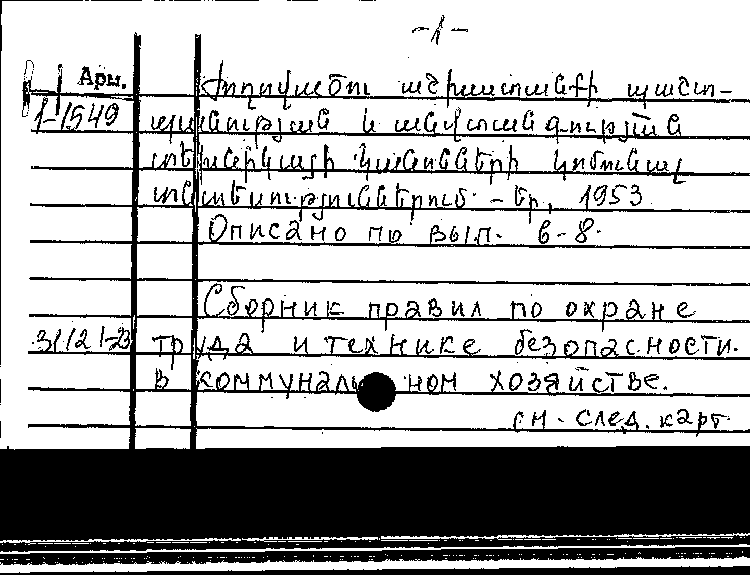 -1-
Арм.
1-1549
Ժողովածու աշխատանքի պաշտ-
պանության և անվտանգության
տեխնիկայի կանոնների կոմունալ
տնտեսություններում. - Եր, 1953
Описано по вып. 6-8.
Сборник правил по охране
труда и технике безопасности.
в коммунальном хозяйстве.
см. след. карт